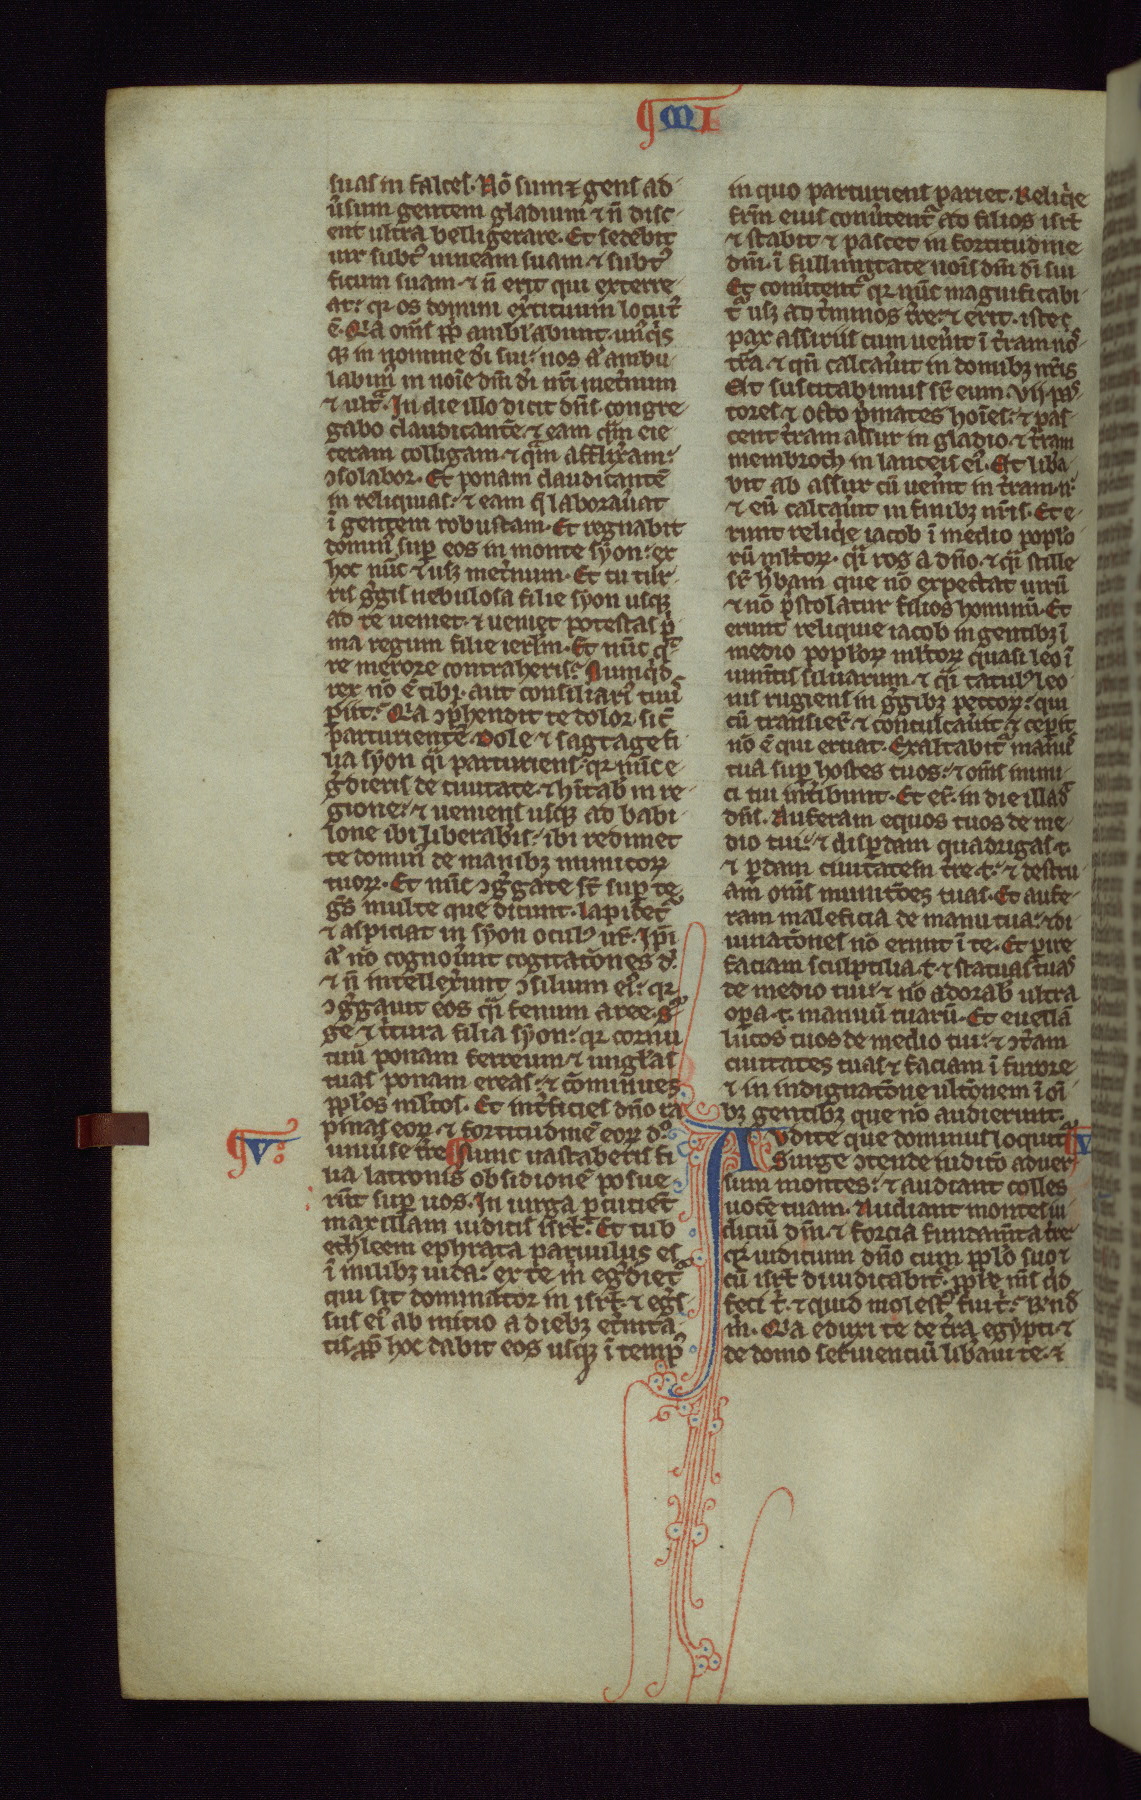 MI
suas in falces. Nō sumet gens ad
ūsum gentem gladium ⁊ n̄ disc
ent ultra belligerare. Et sedebit
uir subt᷒ uineam suam ⁊ subt᷒
ficum suam ⁊ n̄ erit qui exterre
at: qr os domini ex̄cituum locut᷒
ē. Q̇a om̄s ppl̄i ambl̄abunt. un᷒q̇s
q; in nomine dī sui: nos a᷒ ambu
labim᷒ in noīe dn̄i dī nr̄i inet̄num
⁊ ultᷓ. In die illo dicit dn̄s. congre
gabo claudicantē ⁊ eam qᷓm eie
ceram colligam ⁊ qᷓm afflixam:
ↄsolabor. Et ponam claudicantē
in reliquias: ⁊ eam q̄ laborau̓at
ī gentem robustam. Et regnabit
domin᷒ sup̱ eos in monte syon: ex
hoc nūc ⁊ usꝫ inet̄num. Et tu tur
ris g᷒gis nebulosa filie syon usq;
ad te ueniet ⁊ ueniet potestas p̓
ma regum filie ierl̄m. Et nūc qᷓ
re merore contraheris: Numq̇d
rex nō ē tibi. aut consiliari᷒ tuus
p̱iit: Q̇a ↄp̱hendit te dolor. sic̄
parturientē. Dole ⁊ satage fi
lia syon qᷓi parturiens: qr nūc e
g᷒dieris de ciuitate ⁊ hītab̄ in re
gione: ⁊ uenies usq; ad babi
lone ibi liberab̄is: ibi redimet
te domin᷒ de manibꝫ inimicoꝝ
tuoꝝ. Et nūc ↄg᷒gate st̄ sup̱ te
ḡs multe que dicunt. lapidet᷒
⁊ aspiciat in syon ocul᷒ nr̄. Ip̄i
a᷒ nō cognou̓unt cogitatōnes d̄.
⁊ n̄ intellex̄unt ↄsilium ei᷒: qr
ↄg᷒gauit eos qᷓi fenum aree. S᷒
ge ⁊ t̓tura filia syon: qr cornu
tuū ponam ferreum ⁊ ungl̄as
tuas ponam ereas: ⁊ cōminues
ppl̄os ml̄tos. Et int̄ficies dn̄o ra
pinas eoꝝ ⁊ fortitudinē eoꝝ d᷒o
uniu̓se tr̄e Nunc uastaberis fi
V
lia latronis obsidionē posue
rūt sup̱ uos. In uirga p̱cutient
maxillam iudicis isrl̄. Et tu b
ethleem ephrata paruulus es
ī milibꝫ iuda: ex te m̓ eg᷒diet᷒
qui sit dominator in isrl̄ ⁊ eg᷒s
sus ei᷒ ab initio a diebꝫ et̄nita
tis. pp̄ hoc dabit eos usq; ī temp᷒
in quo parturiens pariet. Reliq̇e
fr̄m eius conu̓tent᷒ ad filios isrl̄
⁊ stabit ⁊ pascet in fortitudine
dn̄i. ī sullimitate nōis dn̄i dī sui
Et conu̓tent᷒ qr nūc magnificabi
t᷒ usꝫ ad t̓minos tr̄e: ⁊ erit. iste
pax assirius cum uen̓it ī t̓ram no
tr̄a. ⁊ qn̄ calcau̓it in domibꝫ nr̄is
Et suscitabimus sr̄ eum. VII. pas
tores ⁊ octo p̓mates hoīes: ⁊ pas
cent t̓ram assur in gladio. ⁊ t̓ram
membroth in lanceis ei᷒. Et lib̓a
bit ab assur cū uen̓it in t̓ram n̄.
⁊ cū calcau̓it in finibꝫ nr̄is. Et e
runt reliq̇e iacob ī medio poplo
rū ml̄toꝝ. qᷓi ros a dn̄o. ⁊ qᷓi stille
sr̄ h̓bam que nō expectat uirū
⁊ nō p̄stolatur filios hominū. Et
erunt reliquie iacob in gentibꝫ ī
medio popl̄oꝝ ml̄toꝝ quasi leo ī
iumtis siluarum. ⁊ qᷓi catul᷒ leo
nis rugiens in g᷒gibꝫ pectoꝝ: qui
cū transier̄ ⁊ conculcau̓it ⁊ cep̱it
nō ē qui eruat. Exaltabit᷒ man᷒
tua sup̱ hostes tuos: ⁊ om̄s inimi
ci tui int̓ibunt. Et er̄. in die illa d̄
dn̄s. Auferam equos tuos de me
dio tui: ⁊ disp̱dam quadrigas t.
⁊ p̱dam ciuitates tr̄e. t: ⁊ destru
am om̄s munitōes tuas. Et aufe
ram maleficia de manu tua: ⁊ di
uinatōnes nō erunt ī te. Et p̱ire
faciam sculptilia. t. ⁊ statuas tuas
de medio tui: ⁊ nō adorab̄ ultra
op̱a. t. manuū tuarū. Et euellā
lucos tuos de medio tui: ⁊ ↄt̓am
ciuitates tuas ⁊ faciam ī furore
⁊ in indignatōne ultōnem ī oī
bꝫ gentibꝫ que nō audierunt.
Audite que dominus loquit᷒
V
Surge ↄtende iuditō aduer
sum montes: ⁊ audiant colles
uocē tuam. Audiant montes iu
diciū dn̄i. ⁊ forcia fundam̄ta tr̄e
Qr iudicium dn̄o cum ppl̄o suo ⁊
cū isrl̄ diiudicabit. pple m̄s q̇d
feci t̓. ⁊ quid molest᷒ fui t̓: Rn̄d
m̓. Q̇a eduxi te de t̓ra egypti ⁊
de domo seruienciū lib̓aui te. ⁊